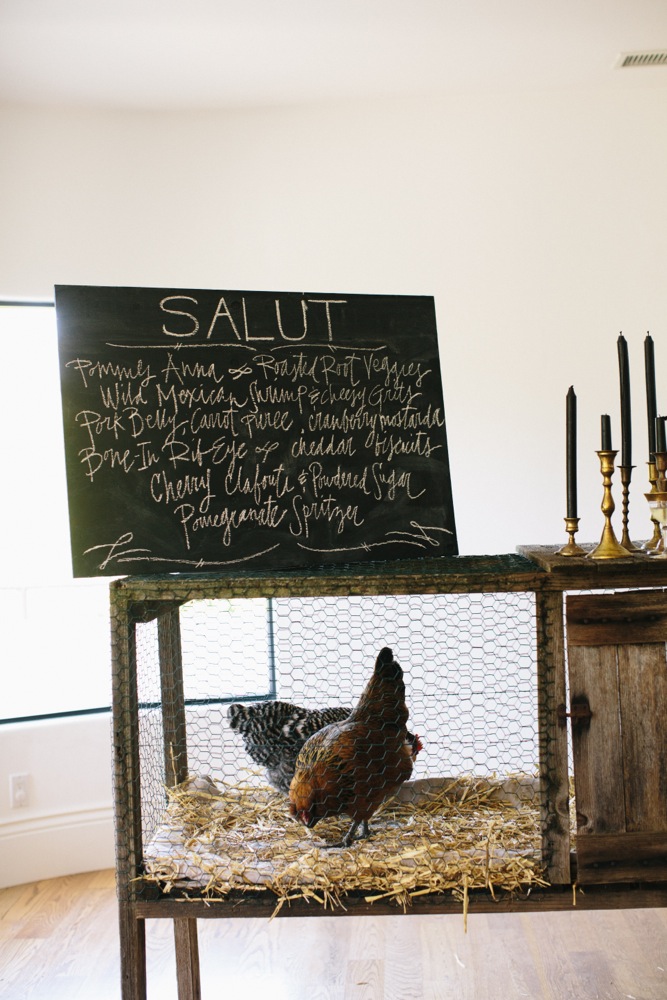 SALUT
Pommes Anna & Roasted Root Veggies
Wild Mexican Shrimp & Cheesy Grits
Pork Belly, Carrot Puree, cranberry mostarda
Bone-In Rib Eye & cheddar biscuits
Cherry Clafouti & Powdered Sugar
Pomegranate Spritzer